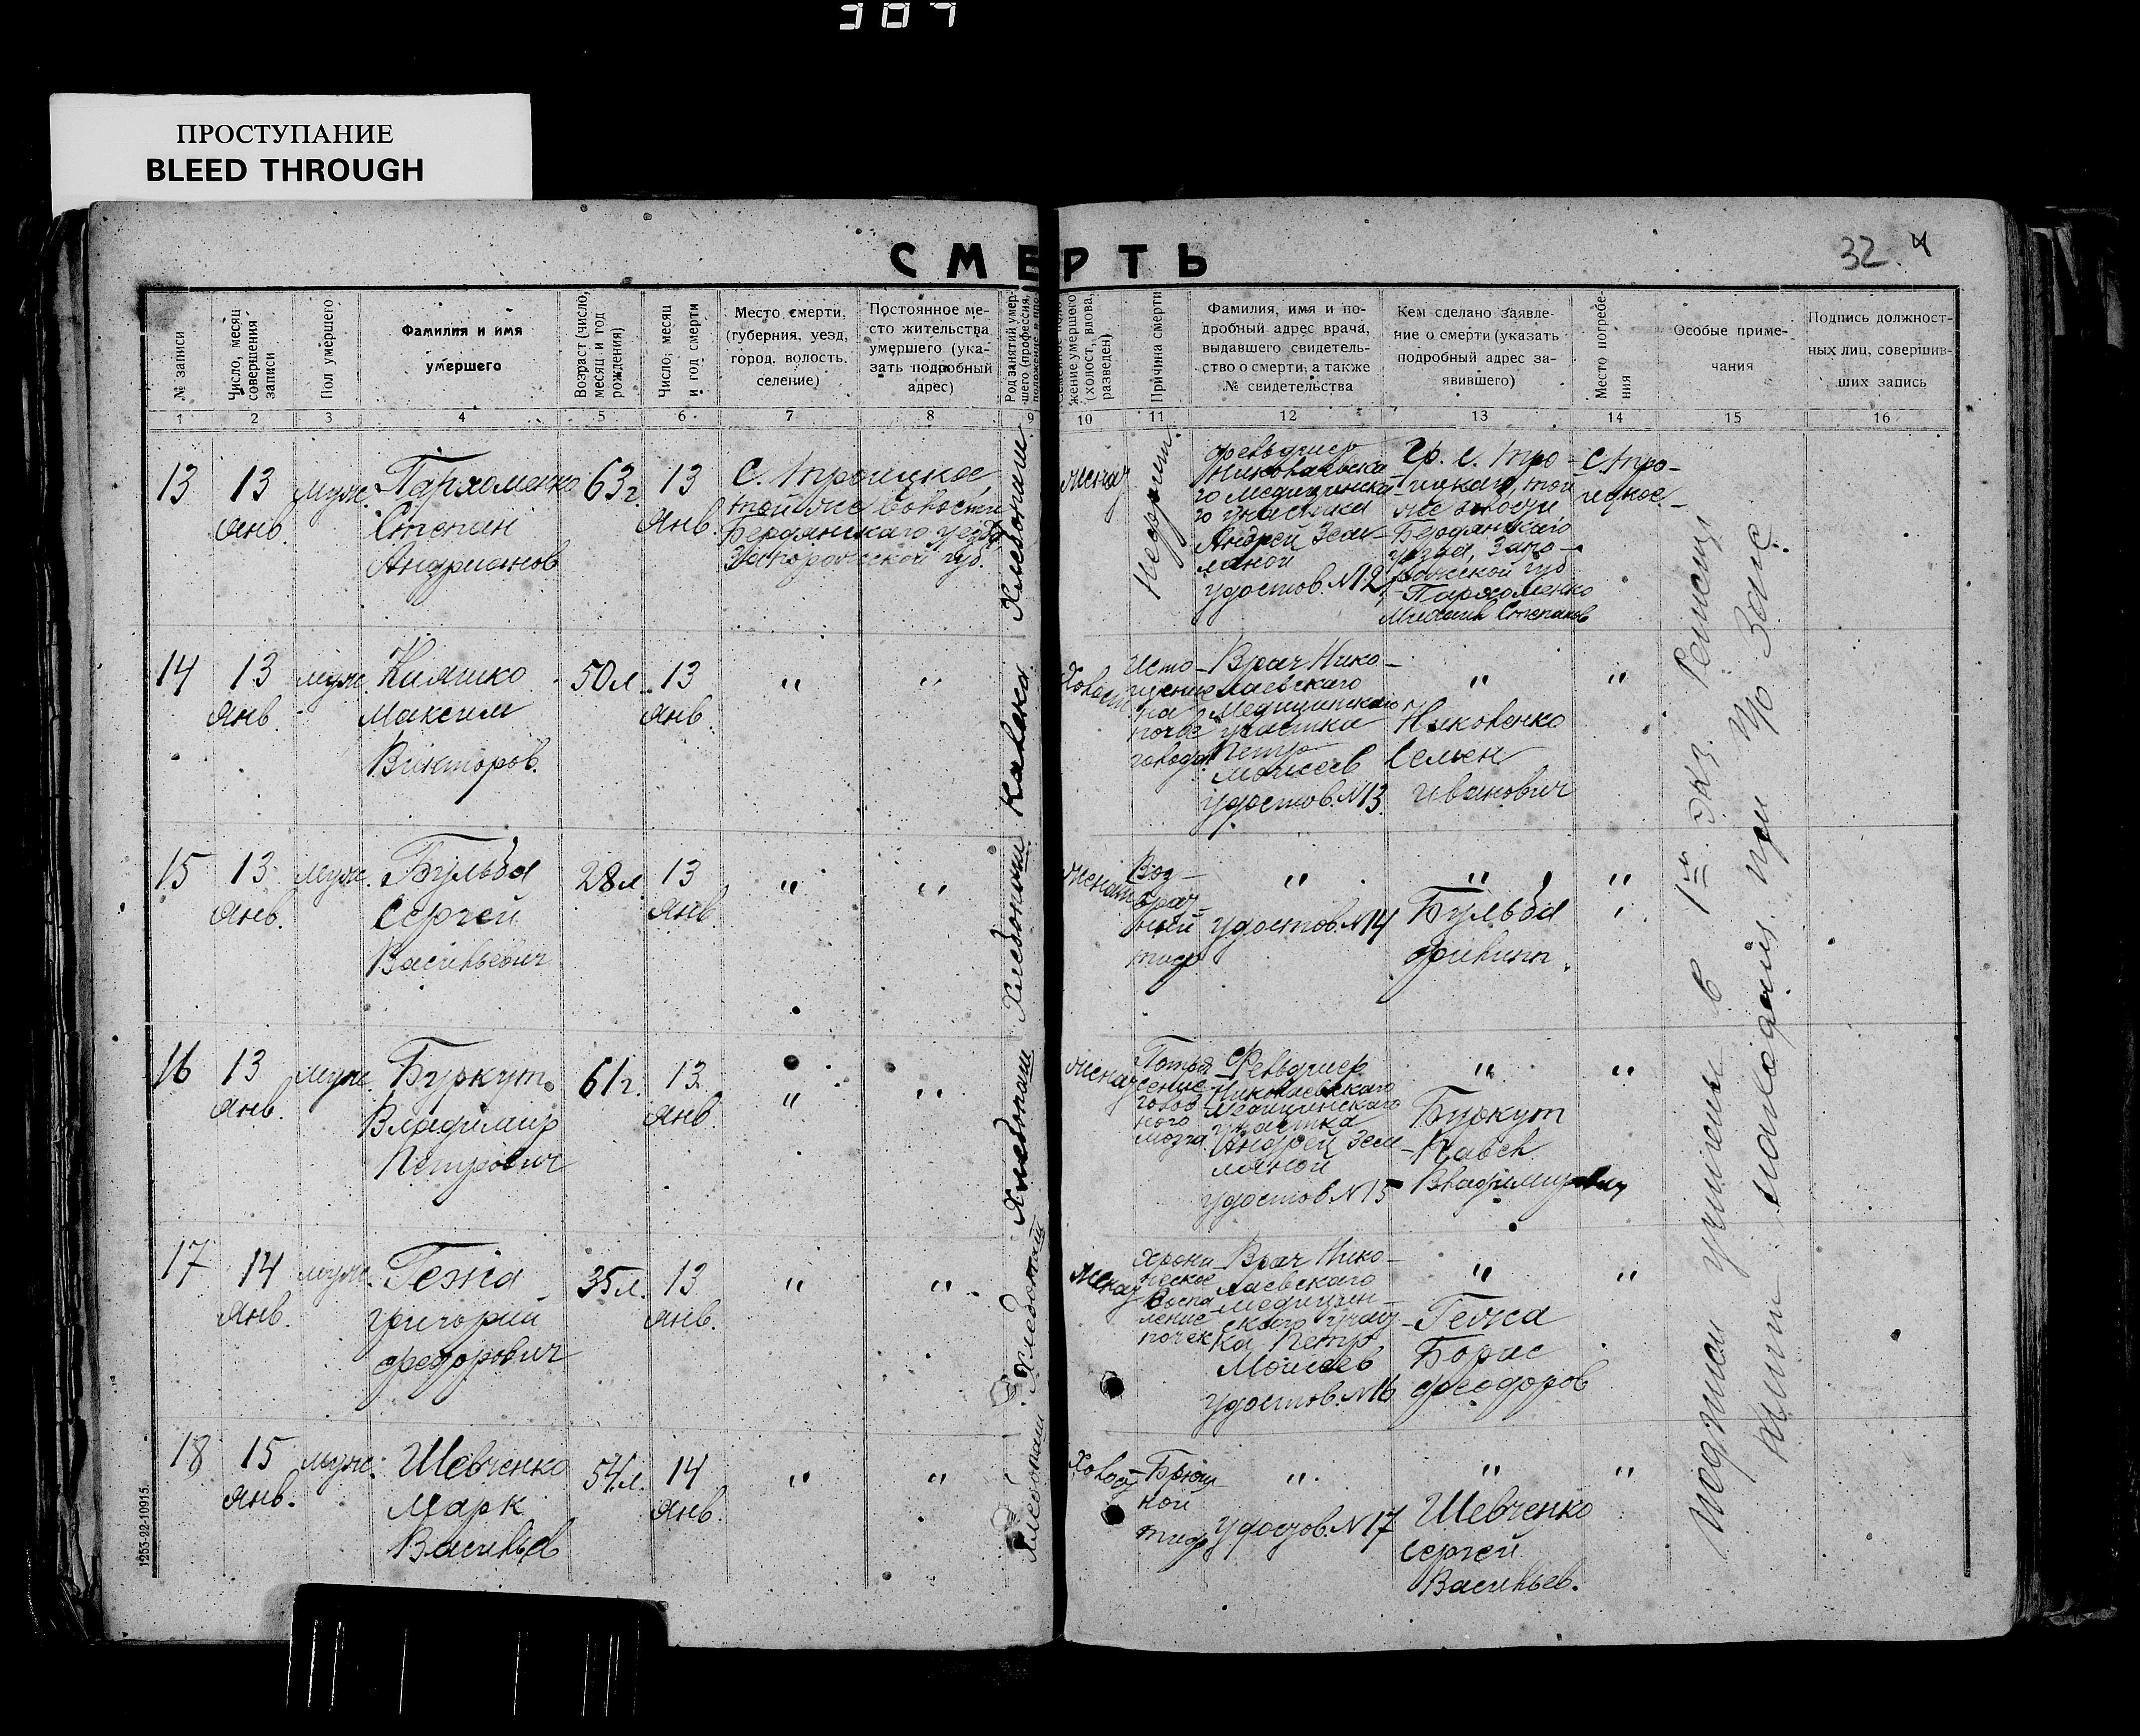 307
ПРОСТУПАНИЕ
BLEED THROUGH
СМЕРТЬ
32.
№ записи
Число, месяц
совершения
записи
Пол умершего
Фамилия и имя
умершего
Возраст (число,
месяц и год
рождения)
Число, месяц
и год смерти
Место смерти,
(губерния, уезд,
город, волость,
селение)
Постоянное ме-
сто жительства
умершего (ука-
зать подробный
адрес)
Род занятий умер-
шего (профессия,
жение умершего
(холост, вдова,
разведен)
Причина смерти
Фамилия, имя и по-
дробный адрес врача,
выдавшего свидетель-
ство о смерти, а также
№ свидетельства
Кем сделано заявле-
ние о смерти (указать
подробный адрес за-
явившего)
Место погребе-
ния
Особые приме-
чания
Подпись должност-
ных лиц, совершив-
ших запись
1 2 3 4 5 6 7 8 9 10 11 12 13 14 15 16
13
13
Янв.
муж.
Пархоменко
Степан
Андрианов
63 г
13
Янв.
С. Троицкое,
той же волости
Бердянскаго уезда,
Запорожской губ.
Хлебопаш.
женат
Нефрит.
Фельдшер
Николаевска
го Медицинска
го участка
Андрей Зем-
ляной
удостов. №12
Гр. с. Тро-
ицкаго, той
же волости
Бердянскаго
уезда, Запо-
рожской губ
Пархоменко
Михаил Степанов
С Тро-
ицкое
14
13
Янв.
муж.
Кияшко
Максим
Викторов.
50 л.
13
Янв.
"
"
Калека
Холост
Исто-
щение
на
почве
голода
Врач Нико-
лаевскаго
Медицинскаго
участка
Петр
Моисеев
удостов. №13
"
Яковенко
Семен
Иванович
"
15
13
Янв.
муж.
Бульба
Сергей
Васильевич
28 л
13
Янв.
"
"
Хлебопаш
женат
Воз-
врат
ный
тиф
"
удостов. №14
"
Бульба
Филипп.
"
16
13
Янв.
муж
Буркут
Владимир
Петрович
61 г.
13
Янв.
"
"
Хлебопаш
женат
Потря
сение
голов
ного
мозга
Фельдшер
Николаевскаго
медицинскаго
участка
Андрей Зем-
ляной
удостов. №15
"
Буркут
Павел
Владимирович
"
17
14
Янв.
муж.
Гежа
Григорий
Федорович
35 л.
13
Янв.
"
"
Хлебопаш
женат
Хрони
ческое
Воспа
ление
почек
Врач Нико-
лаевского
медицин-
скаго участ-
ка Петр
Моисеев
удостов. №16
"
Гежа
Борис
Феодоров
"
18
15
Янв.
муж.
Шевченко
Марк
Васильев
54 л.
14
Янв.
"
"
Хлебопаш
Холост
Брюш
ной
тиф
"
удостов. №17
"
Шевченко
Сергей
Васильев.
"
Подписи учинены в 1м экз. Ремсищ
при Загс
1253-22-10915.